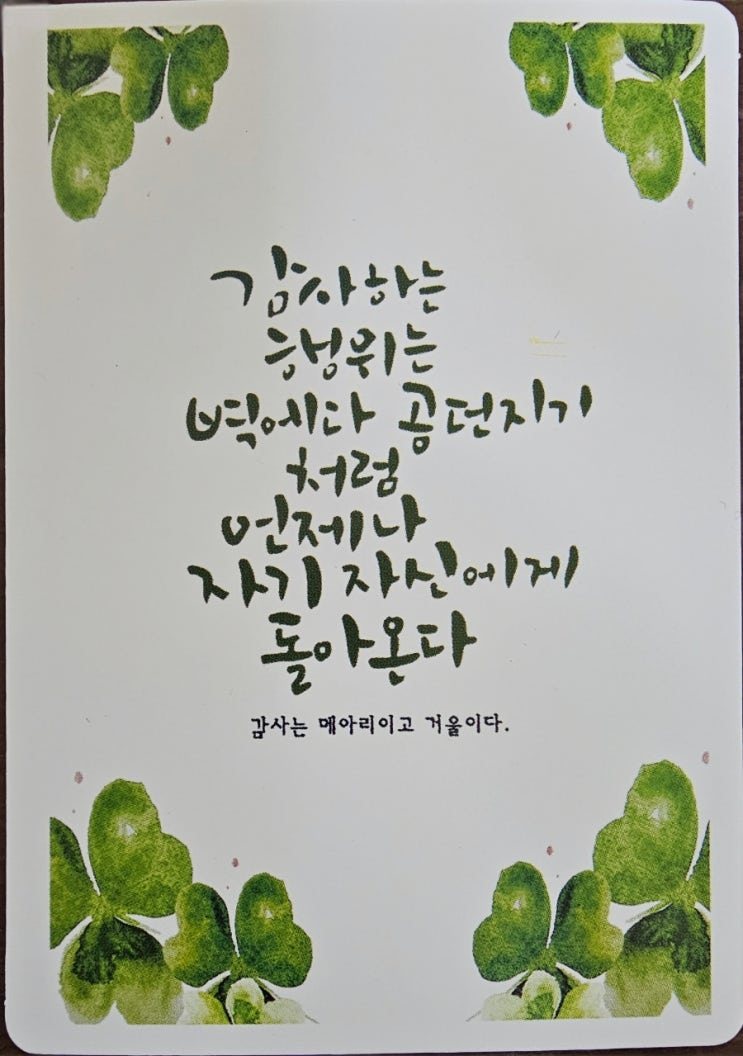 감사하는
행위는
벽에다 공던지기
처럼
언제나
자기 자신에게
돌아온다
감사는 메아리이고 거울이다.